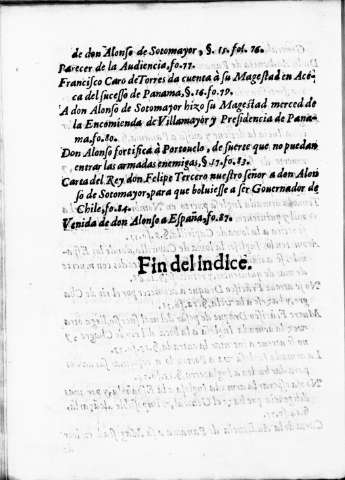 de don Alonso de Sotomayor, §. 15. fol. 76.
Parecer de la Audiencia, fo. 77.
Francisco Caro de Torres da cuenta à su Magestad en Aco-
ca del sucesso de Panama, §. 16. fo. 79.
A don Alonso de Sotomayor hizo su Magestad merced de
la Encomienda de Villamayor y Presidencia de Pana-
ma, fo. 80.
Don Alonso fortifica à Portouelo, de suerte que no puedan
entrar las armadas enemigas, §. 17. fo. 83.
Carta del Rey don Felipe Tercero nuestro señor a don Alon
so de Sotomayor, para que boluiesse a ser Gouernador de
Chile, fo. 84.
Venida de don Alonso a España, fo. 87.
Fin del indice.